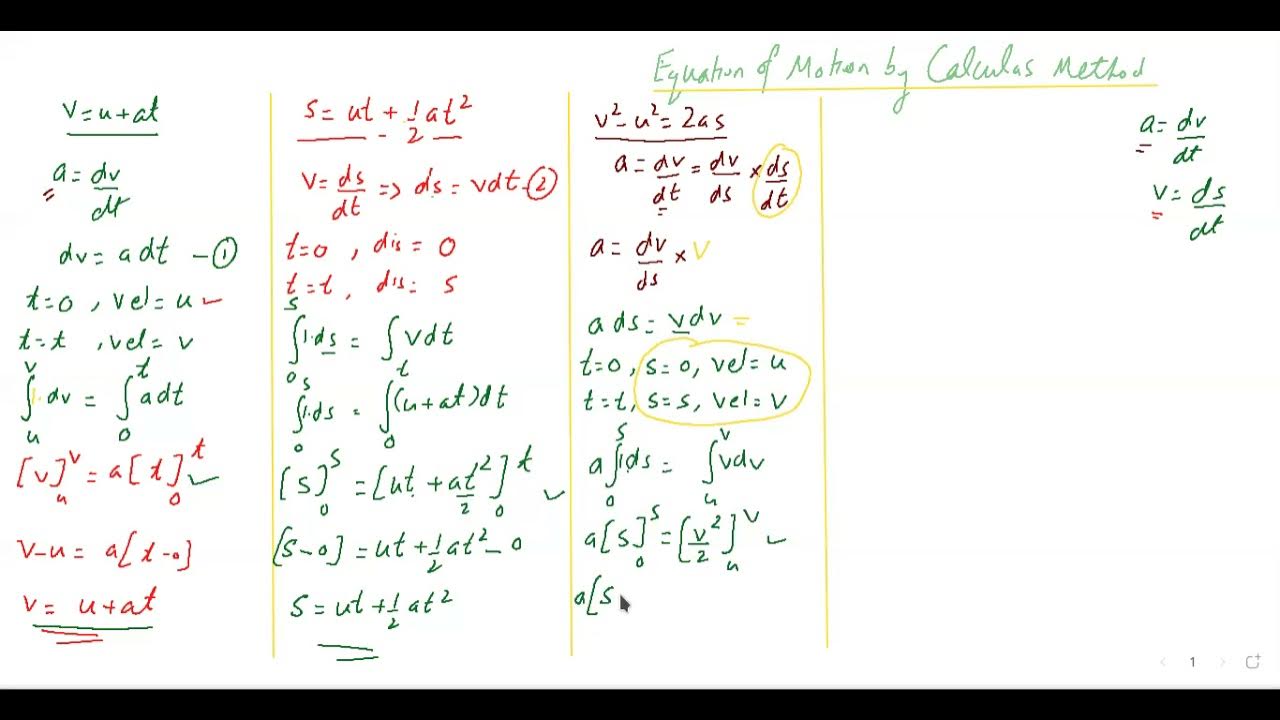 Equation of Motion by Calculas Method
v = u + at
a = dv/dt
dv = a dt - ①
t = 0 , vel = u ✓
t = t , vel = v
∫ᵤᵛ 1. dv = ∫₀ᵗ a dt
[v]ᵤᵛ = a[t]₀ᵗ ✓
v - u = a[t - 0]
v = u + at
s = ut + 1/2 at²
v = ds/dt => ds = vdt - ②
t = 0 , dis = 0
t = t , dis = s
∫₀ˢ 1. ds = ∫ vdt
∫₀ˢ 1. ds = ∫₀ᵗ (u + at) dt
[s]₀ˢ = [ut + at²/2]₀ᵗ ✓
[s - 0] = ut + 1/2 at² - 0
s = ut + 1/2 at²
v² - u² = 2as
a = dv/dt = dv/ds × ds/dt
a = dv/ds × v
a ds = vdv =
t = 0 , s = 0, vel = u
t = t, s = s, vel = v
a ∫₀ˢ 1 ds = ∫ᵤᵛ vdv
a[s]₀ˢ = [v²/2]ᵤᵛ ✓
a[s
a = dv/dt
v = ds/dt
1